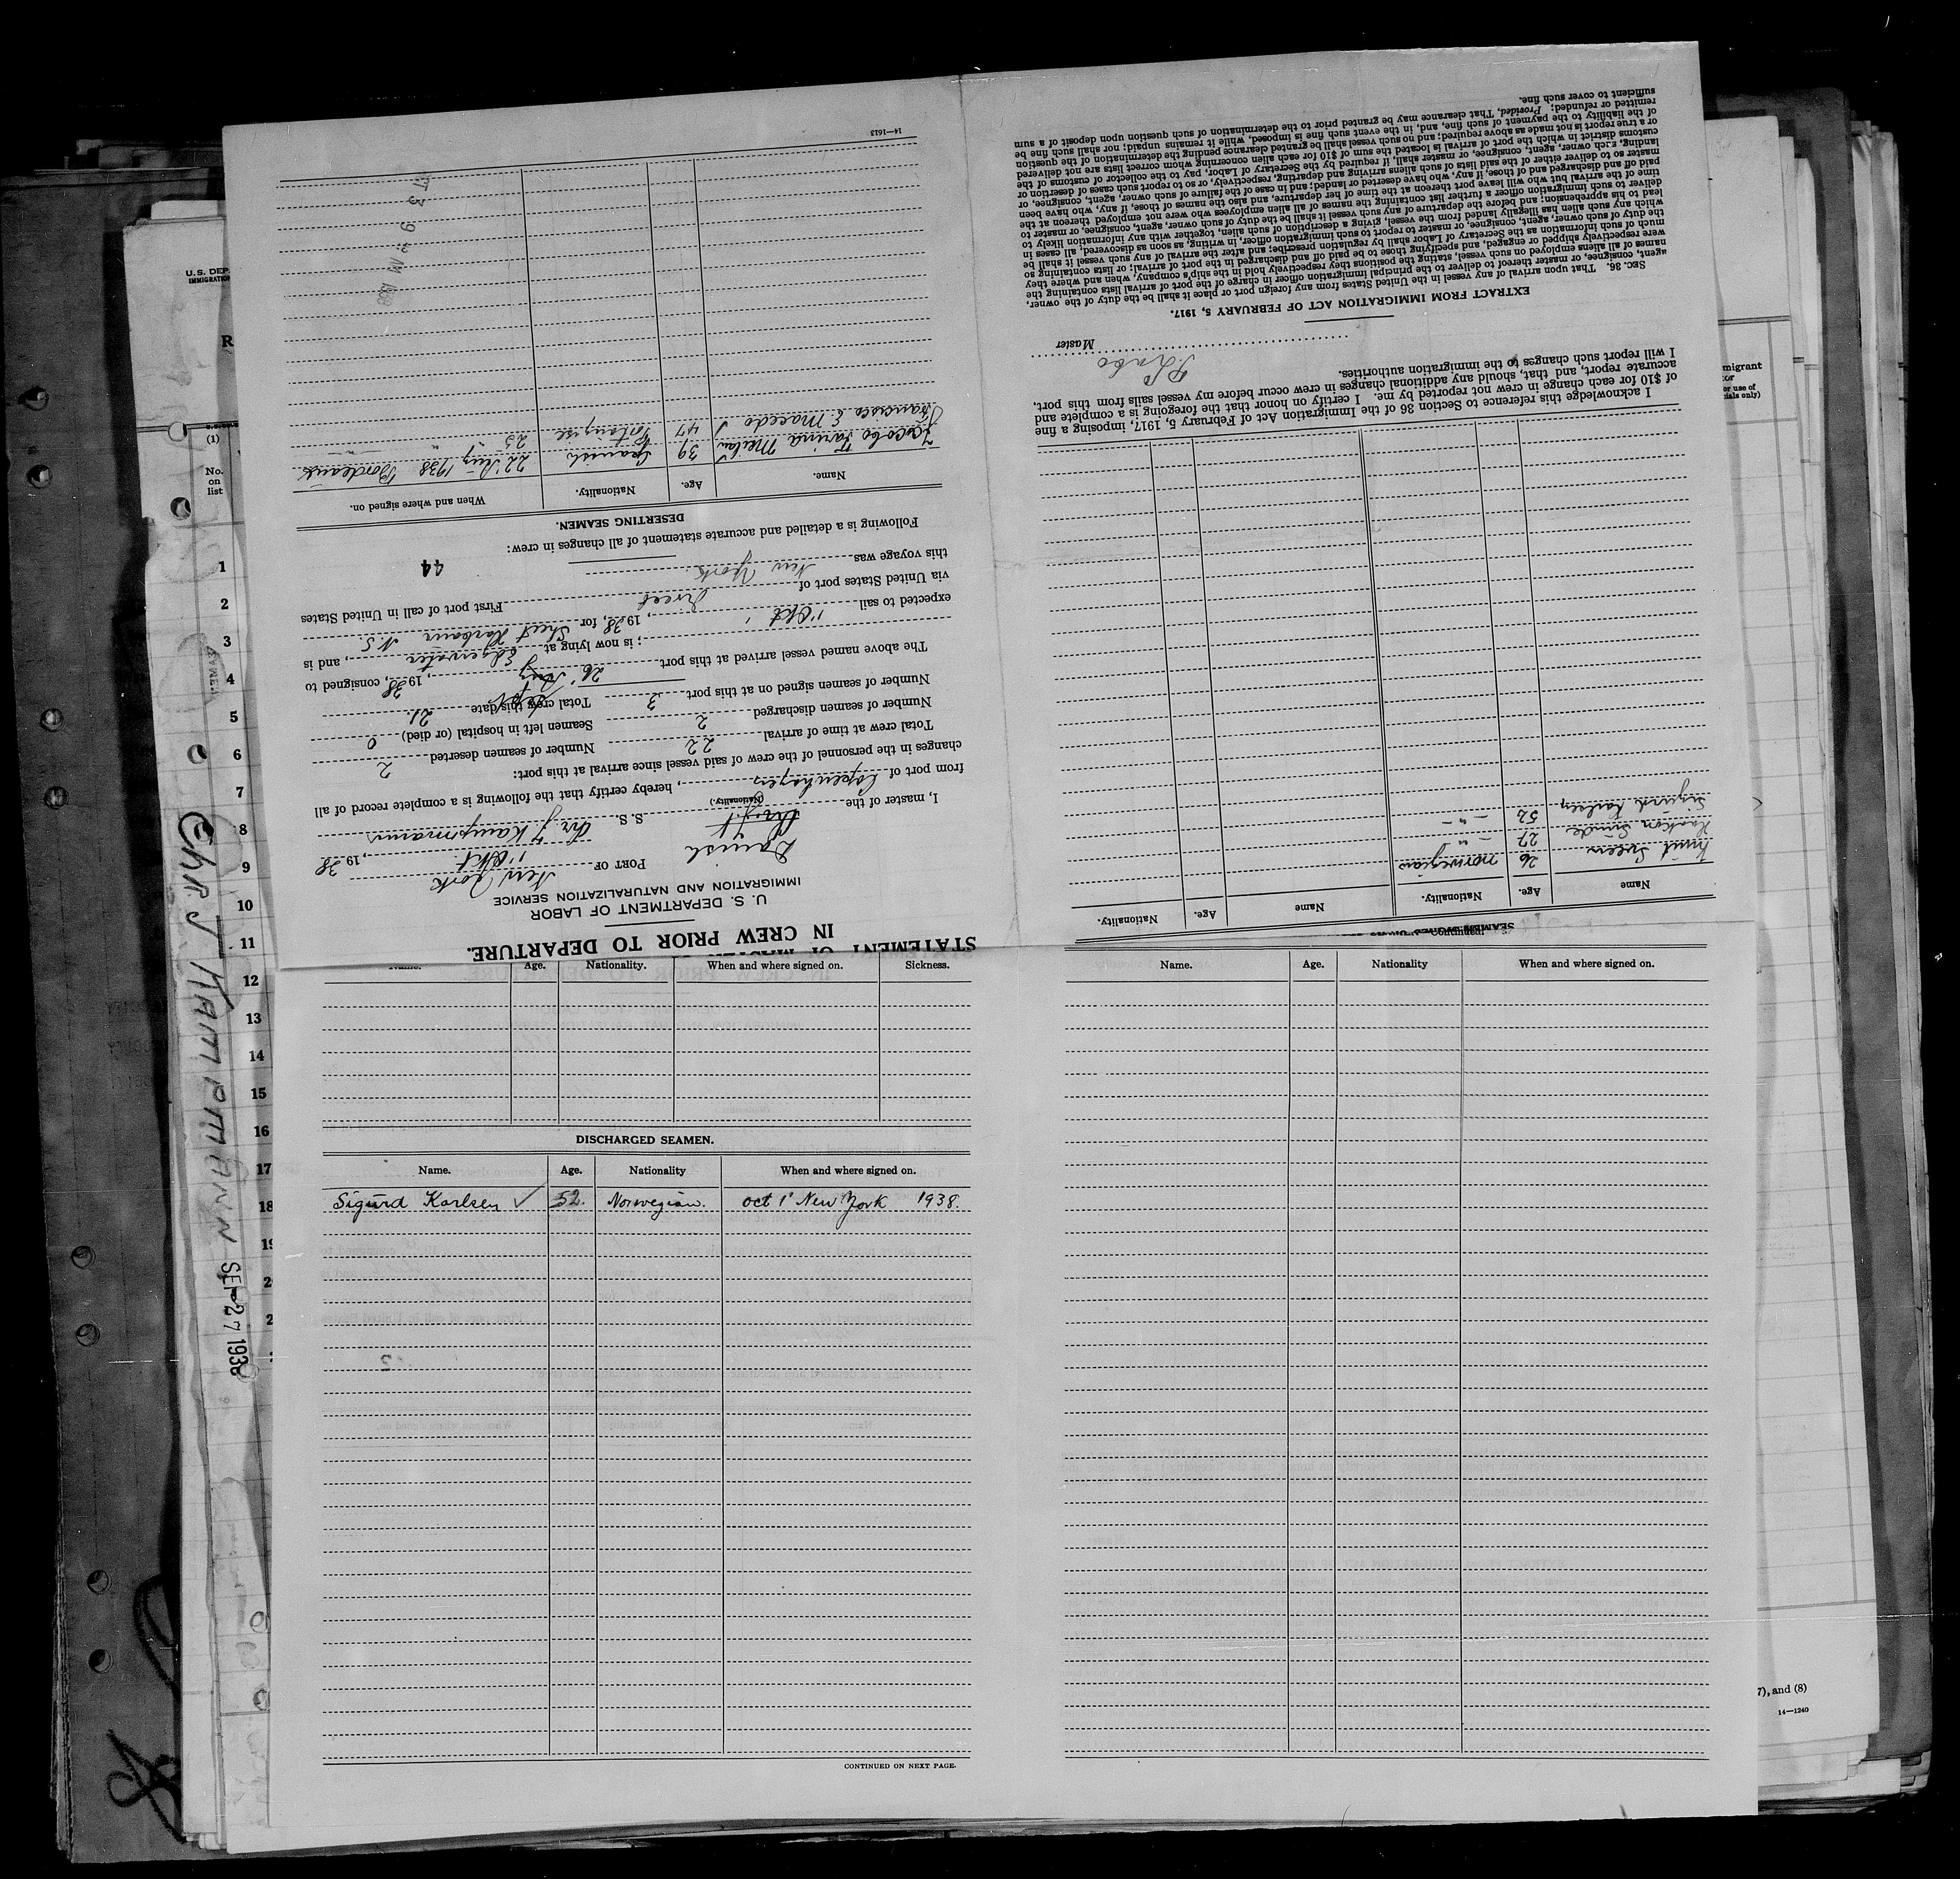 STATEMENT OF MASTER
IN CREW PRIOR TO DEPARTURE.
U. S. DEPARTMENT OF LABOR
IMMIGRATION AND NATURALIZATION SERVICE
PORT OF New York
1' Okt, 1938
Danish
I, master of the S. S. Chr. J. Kampmann
(Nationality.)
from port of Copenhagen, hereby certify that the following is a complete record of all
changes in the personnel of the crew of said vessel since arrival at this port:
Total crew at time of arrival 22 Number of seamen deserted 2
Number of seamen discharged 2 Seamen left in hospital (or died) 0
Number of seamen signed on at this port 3 Total crew this date 21.
The above named vessel arrived at this port 26' Sept, 1938, consigned to
; is now lying at Edgewater, and is
expected to sail 1' Okt, 1938, for Sheet Harbour N.S.
via United States port of direct First port of call in United States
this voyage was New York
44
Following is a detailed and accurate statement of all changes in crew:
DESERTING SEAMEN.
Name. Age. Nationality. When and where signed on.
Jacobo Farina Meilan 39 Spanish 22' Aug 1938 Bordeaux
Francisco E Macedo 47 Portuguise 23 " "
14—1613
SEAMEN
Continued.
Name Age. Nationality. Name Age. Nationality.
Knut Sveen 26 norwegian
Haakon Sunde 27 — " —
Sigurd Karlsen 52 — " —
I acknowledge this reference to Section 36 of the Immigration Act of February 5, 1917, imposing a fine
of $10 for each change in crew not reported by me. I certify on honor that the foregoing is a complete and
accurate report, and that, should any additional changes in crew occur before my vessel sails from this port,
I will report such changes to the immigration authorities.
Master
EXTRACT FROM IMMIGRATION ACT OF FEBRUARY 5, 1917.
SEC. 36. That upon arrival of any vessel in the United States from any foreign port or place it shall be the duty of the owner,
agent, consignee, or master thereof to deliver to the principal immigration officer in charge of the port of arrival lists containing the
names of all aliens employed on such vessel, stating the positions they respectively hold in the ship's company, when and where they
were respectively shipped or engaged, and specifying those to be paid off and discharged in the port of arrival; or lists containing so
much of such information as the Secretary of Labor shall by regulation prescribe; and after the arrival of any such vessel it shall be
the duty of such owner, agent, consignee, or master to report to such immigration officer, in writing, as soon as discovered, all cases in
which any such alien has illegally landed from the vessel, giving a description of such alien, together with any information likely to
lead to his apprehension; and before the departure of any such vessel it shall be the duty of such owner, agent, consignee, or master to
deliver to such immigration officer a further list containing the names of all alien employees who were not employed thereon at the
time of the arrival but who will leave port thereon at the time of her departure, and also the names of those, if any, who have been
paid off and discharged and of those, if any, who have deserted or landed; and in case of the failure of such owner, agent, consignee, or
master so to deliver either of the said lists of such aliens arriving and departing, respectively, or so to report such cases of desertion or
landing, such owner, agent, consignee, or master shall, if required by the Secretary of Labor, pay to the collector of customs of the
customs district in which the port of arrival is located the sum of $10 for each alien concerning whom correct lists are not delivered
or a true report is not made as above required; and no such vessel shall be granted clearance pending the determination of the question
of the liability to the payment of such fine, and, in the event such fine is imposed, while it remains unpaid; nor shall such fine be
remitted or refunded; Provided, That clearance may be granted prior to the determination of such question upon deposit of a sum
sufficient to cover such fine.
Name. Age. Nationality. When and where signed on. Sickness.
DISCHARGED SEAMEN.
Name. Age. Nationality When and where signed on.
Sigurd Karlsen ✓ 52. Norwegian. oct 1' New York 1938.
CONTINUED ON NEXT PAGE.
Name. Age. Nationality When and where signed on.
U.S. DEP
IMMIGRATION
R
(1)
No.
on
list
1
2
3
4
5
6
7
8
9
10
11
12
13
14
15
16
17
18
Chr. J. KAMPMANN SEP 27 1938
7), and (8)
14—1240